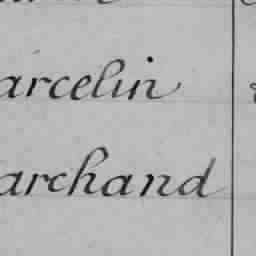 arcelin
archand